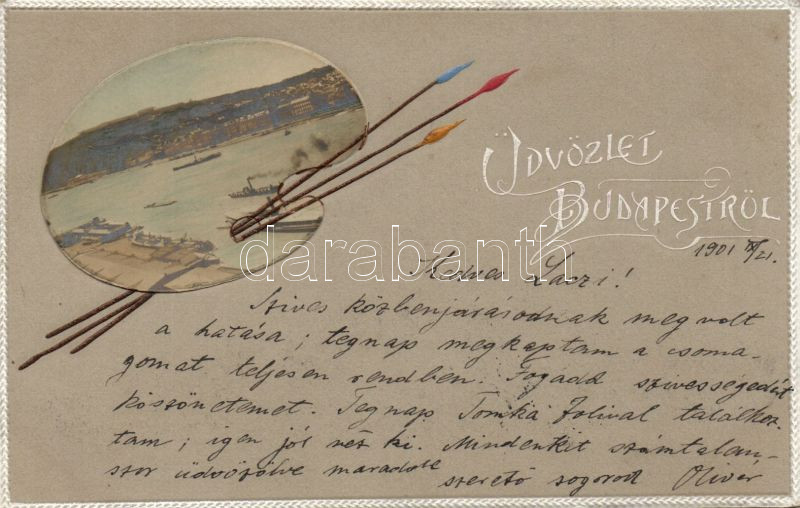 ÜDVÖZLET
BUDAPESTRÖL
1901 X/21.
Kedves Laczi!
Szives közbenjárásodnak meg volt
a hatása; tegnap megkaptam a csoma-
gomat teljesen rendben. Fogadd szivességedért
köszönetemet. Tegnap Tomka Jolival találkoz-
tam; igen jól néz ki. Mindenkit számtalan-
szor üdvözölve maradok
szerető sogorod Olivér
darabanth.com